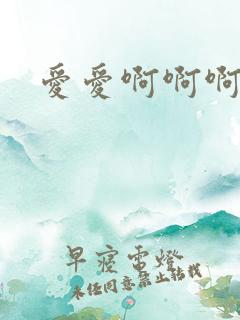 愛愛啊啊啊
早寝電燈
未经同意禁止转载